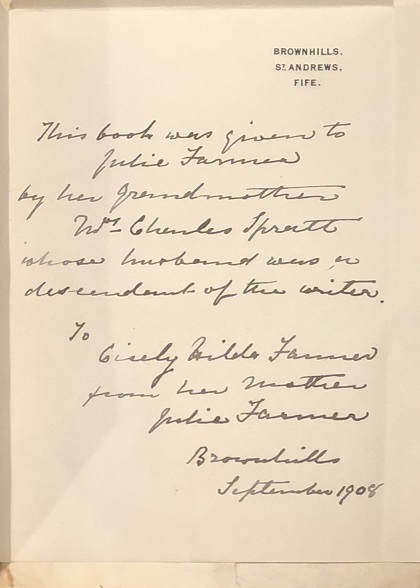 BROWNHILLS,
ST ANDREWS,
FIFE.
This book was given to
Julie Farmer
by her grandmother
Mrs Charles Spratt
whose husband was a
descendant of the writer.
To
Cicely Hilda Farmer
from her Mother
Julie Farmer
Brownhills
September 1908